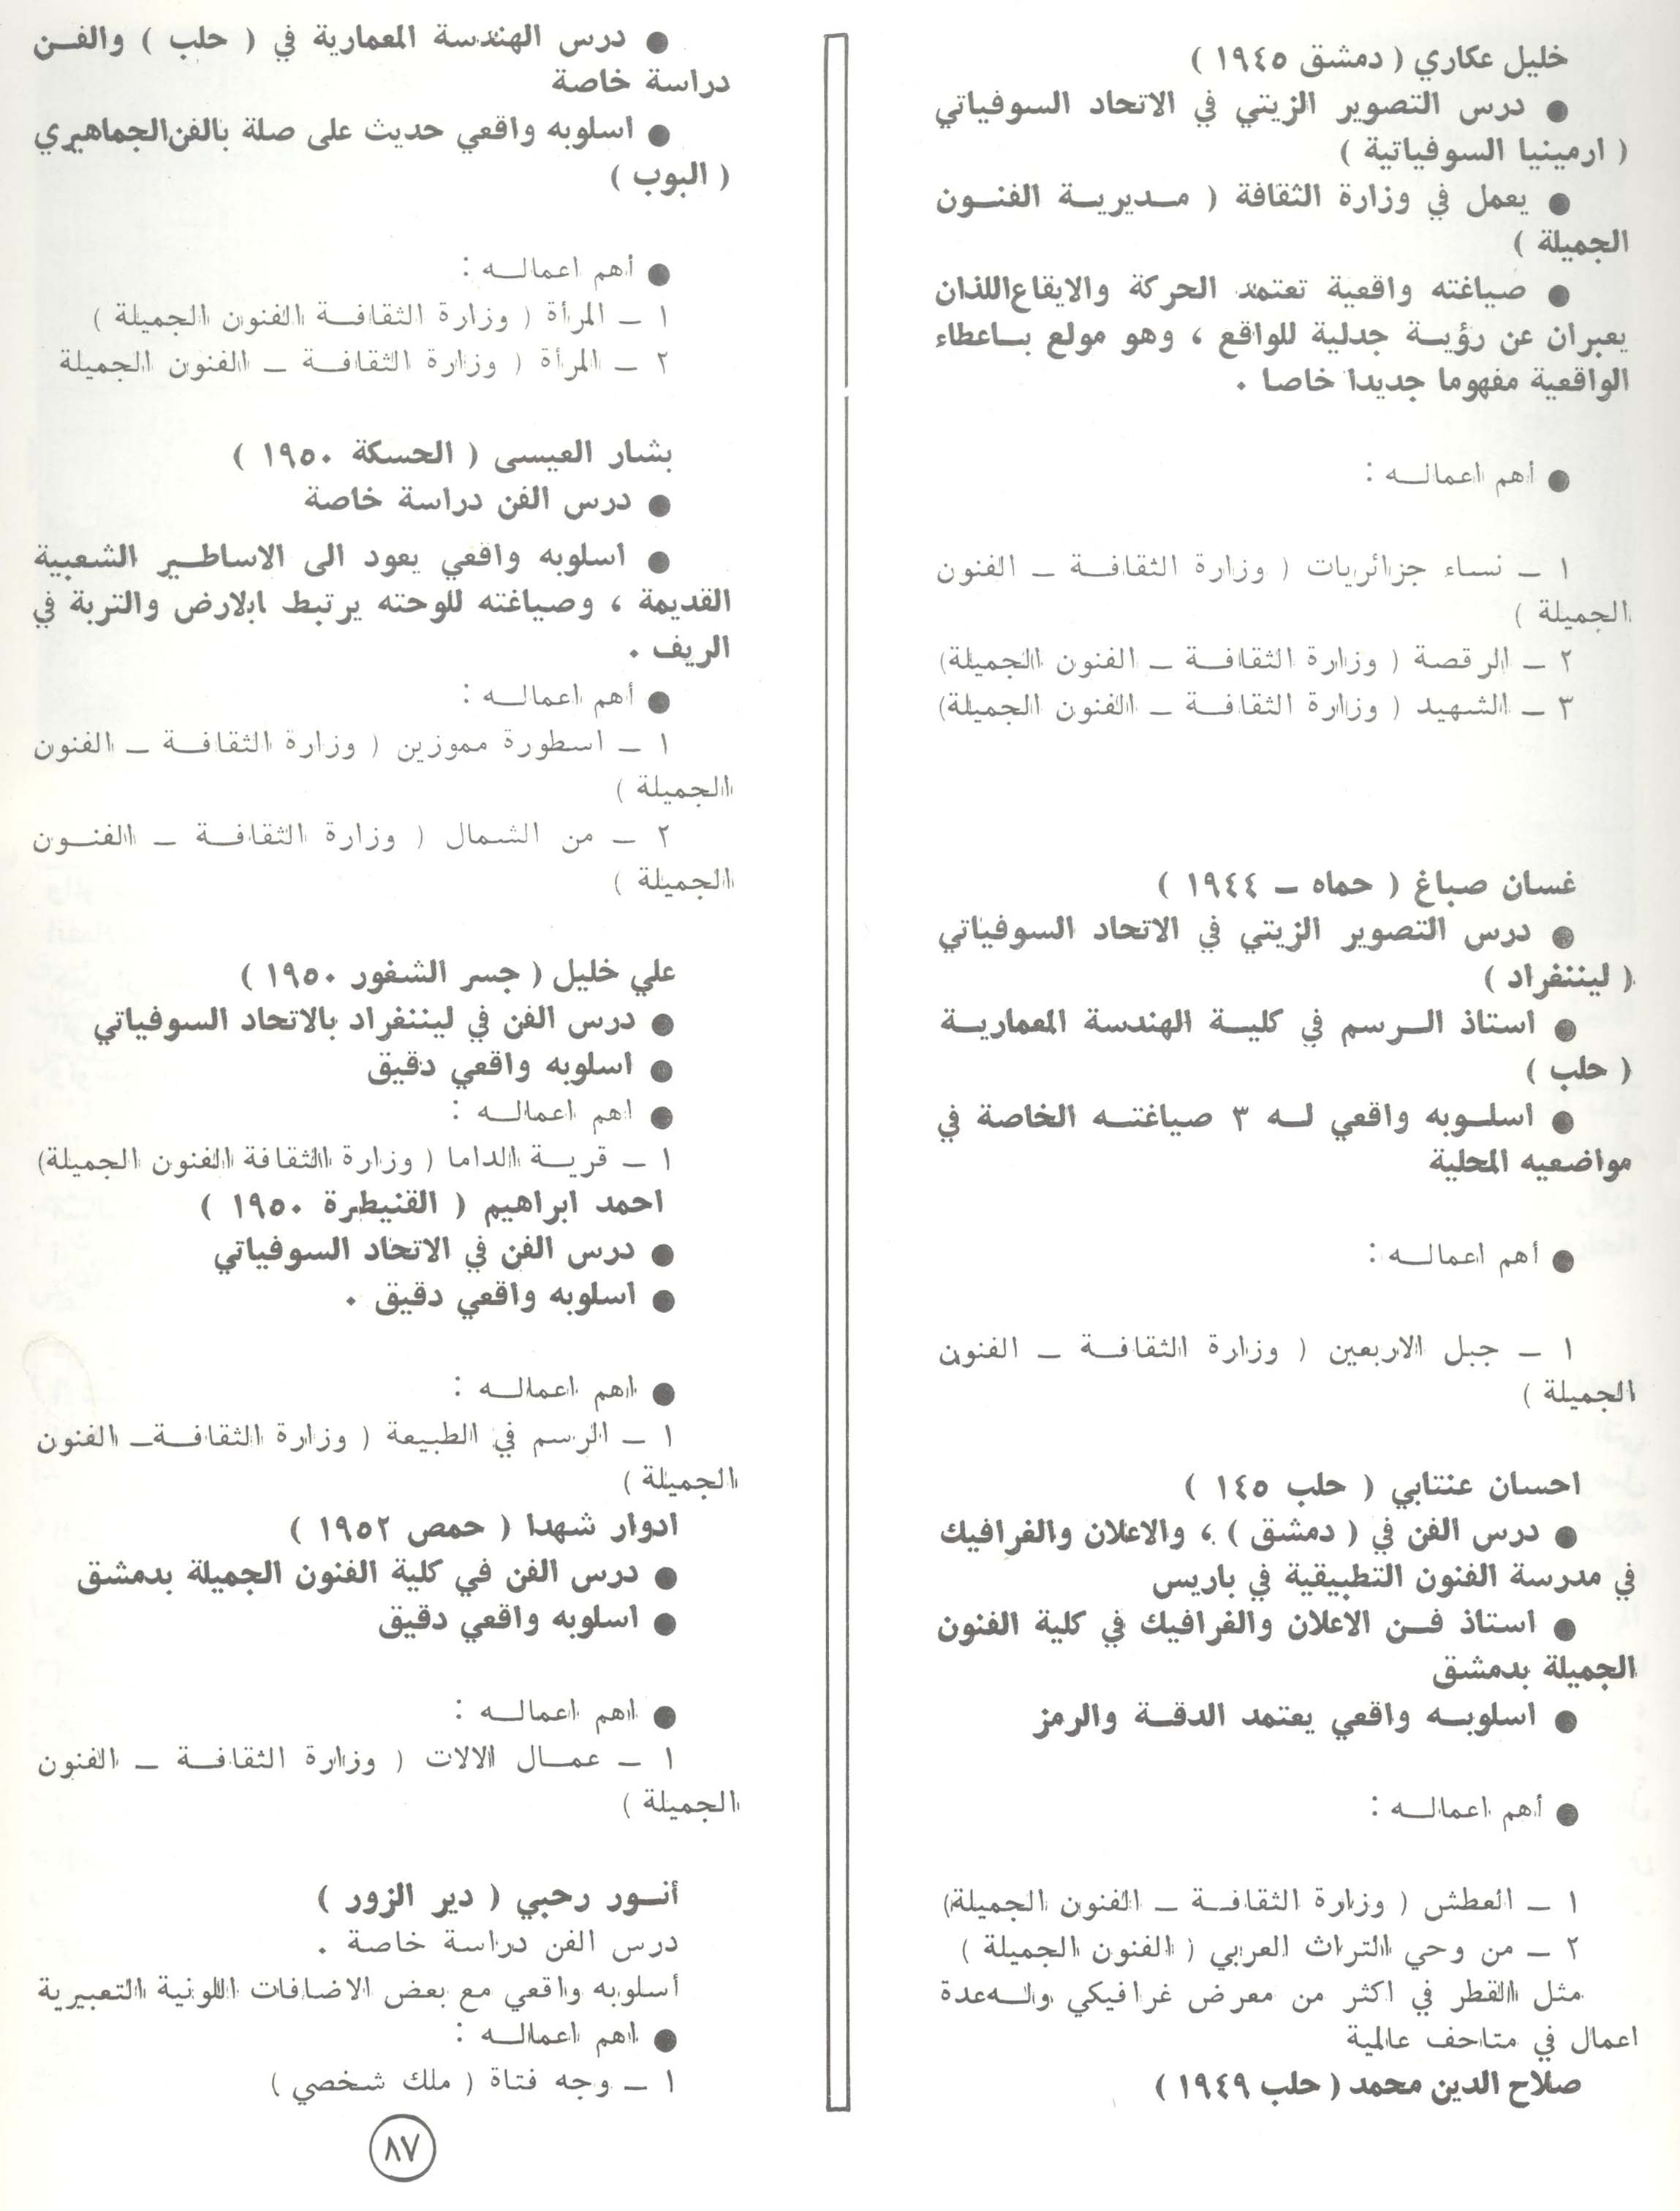 خليل عكاري ( دمشق ١٩٤٥ )
● درس التصوير الزيتي في الاتحاد السوفياتي
( ارمينيا السوفياتية )
● يعمل في وزارة الثقافة ( مـديريـة الفنـون
الجميلة )
● صياغته واقعية تعتمد الحركة والايقاع اللذان
يعبران عن رؤيـة جدلية للواقع ، وهو مولع بـاعطاء
الواقعية مفهوما جديدا خاصا .
● أهم اعمالـه :
١ ـ نساء جزائريات ( وزارة الثقافـة ـ الفنون
الجميلة )
٢ ـ الرقصة ( وزارة الثقافـة ـ الفنون الجميلة)
٣ ـ الشهيد ( وزارة الثقافـة ـ الفنون الجميلة)
غسان صباغ ( حماه ـ ١٩٤٤ )
● درس التصوير الزيتي في الاتحاد السوفياتي
( ليننغراد )
● استاذ الـرسم في كليـة الهندسة المعماريـة
( حلب )
● اسلـوبه واقعي لـه ٣ صياغتـه الخاصة في
مواضعيه المحلية
● أهم اعمالـه :
١ ـ جبل الاربعين ( وزارة الثقافـة ـ الفنون
الجميلة )
احسان عنتابي ( حلب ١٤٥ )
● درس الفن في ( دمشق ) ، والاعلان والغرافيك
في مدرسة الفنون التطبيقية في باريس
● استاذ فـن الاعلان والغرافيك في كلية الفنون
الجميلة بدمشق
● اسلوبـه واقعي يعتمد الدقـة والرمز
● أهم اعمالـه :
١ ـ العطش ( وزارة الثقافـة ـ الفنون الجميلة)
٢ ـ من وحي التراث العربي ( الفنون الجميلة )
مثل القطر في اكثر من معرض غرافيكي ولـه عدة
اعمال في متاحف عالمية
صلاح الدين محمد ( حلب ١٩٤٩ )
● درس الهندسة المعمارية في ( حلب ) والفـن
دراسة خاصة
● اسلوبه واقعي حديث على صلة بالفن الجماهيري
( البوب )
● أهم اعمالـه :
١ ـ المرأة ( وزارة الثقافـة الفنون الجميلة )
٢ ـ المرأة ( وزارة الثقافـة ـ الفنون الجميلة
بشار العيسى ( الحسكة ١٩٥٠ )
● درس الفن دراسة خاصة
● اسلوبه واقعي يعود الى الاساطـير الشعبية
القديمة ، وصياغته للوحته يرتبط ابلارض والتربة في
الريف .
● أهم اعمالـه :
١ ـ اسطورة مموزين ( وزارة الثقافـة ـ الفنون
الجميلة )
٢ ـ من الشمال ( وزارة الثقافـة ـ الفنـون
الجميلة )
علي خليل ( جسر الشغور ١٩٥٠ )
● درس الفن في ليننغراد بالاتحاد السوفياتي
● اسلوبه واقعي دقيق
● اهم اعمالـه :
١ ـ قريـة الداما ( وزارة الثقافة الفنون الجميلة)
احمد ابراهيم ( القنيطرة ١٩٥٠ )
● درس الفن في الاتحاد السوفياتي
● اسلوبه واقعي دقيق .
● اهم اعمالـه :
١ ـ الرسم في الطبيعة ( وزارة الثقافـة ـ الفنون
الجميلة )
ادوار شهدا ( حمص ١٩٥٢ )
● درس الفن في كلية الفنون الجميلة بدمشق
● اسلوبه واقعي دقيق
● اهم اعمالـه :
١ ـ عمـال الالات ( وزارة الثقافـة ـ الفنون
الجميلة )
أنـور رحبي ( دير الزور )
درس الفن دراسة خاصة .
أسلوبه واقعي مع بعض الاضافات اللونية التعبيرية
● اهم اعمالـه :
١ ـ وجه فتاة ( ملك شخصي )
٨٧